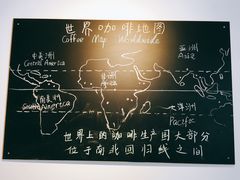 世界咖啡地图
Coffee Map Worldwide
中美洲
Central America
亚洲
Asia
非洲
南美洲
South America
大洋洲
Pacific
世界上的咖啡生产国大部分
位于南北回归线之间